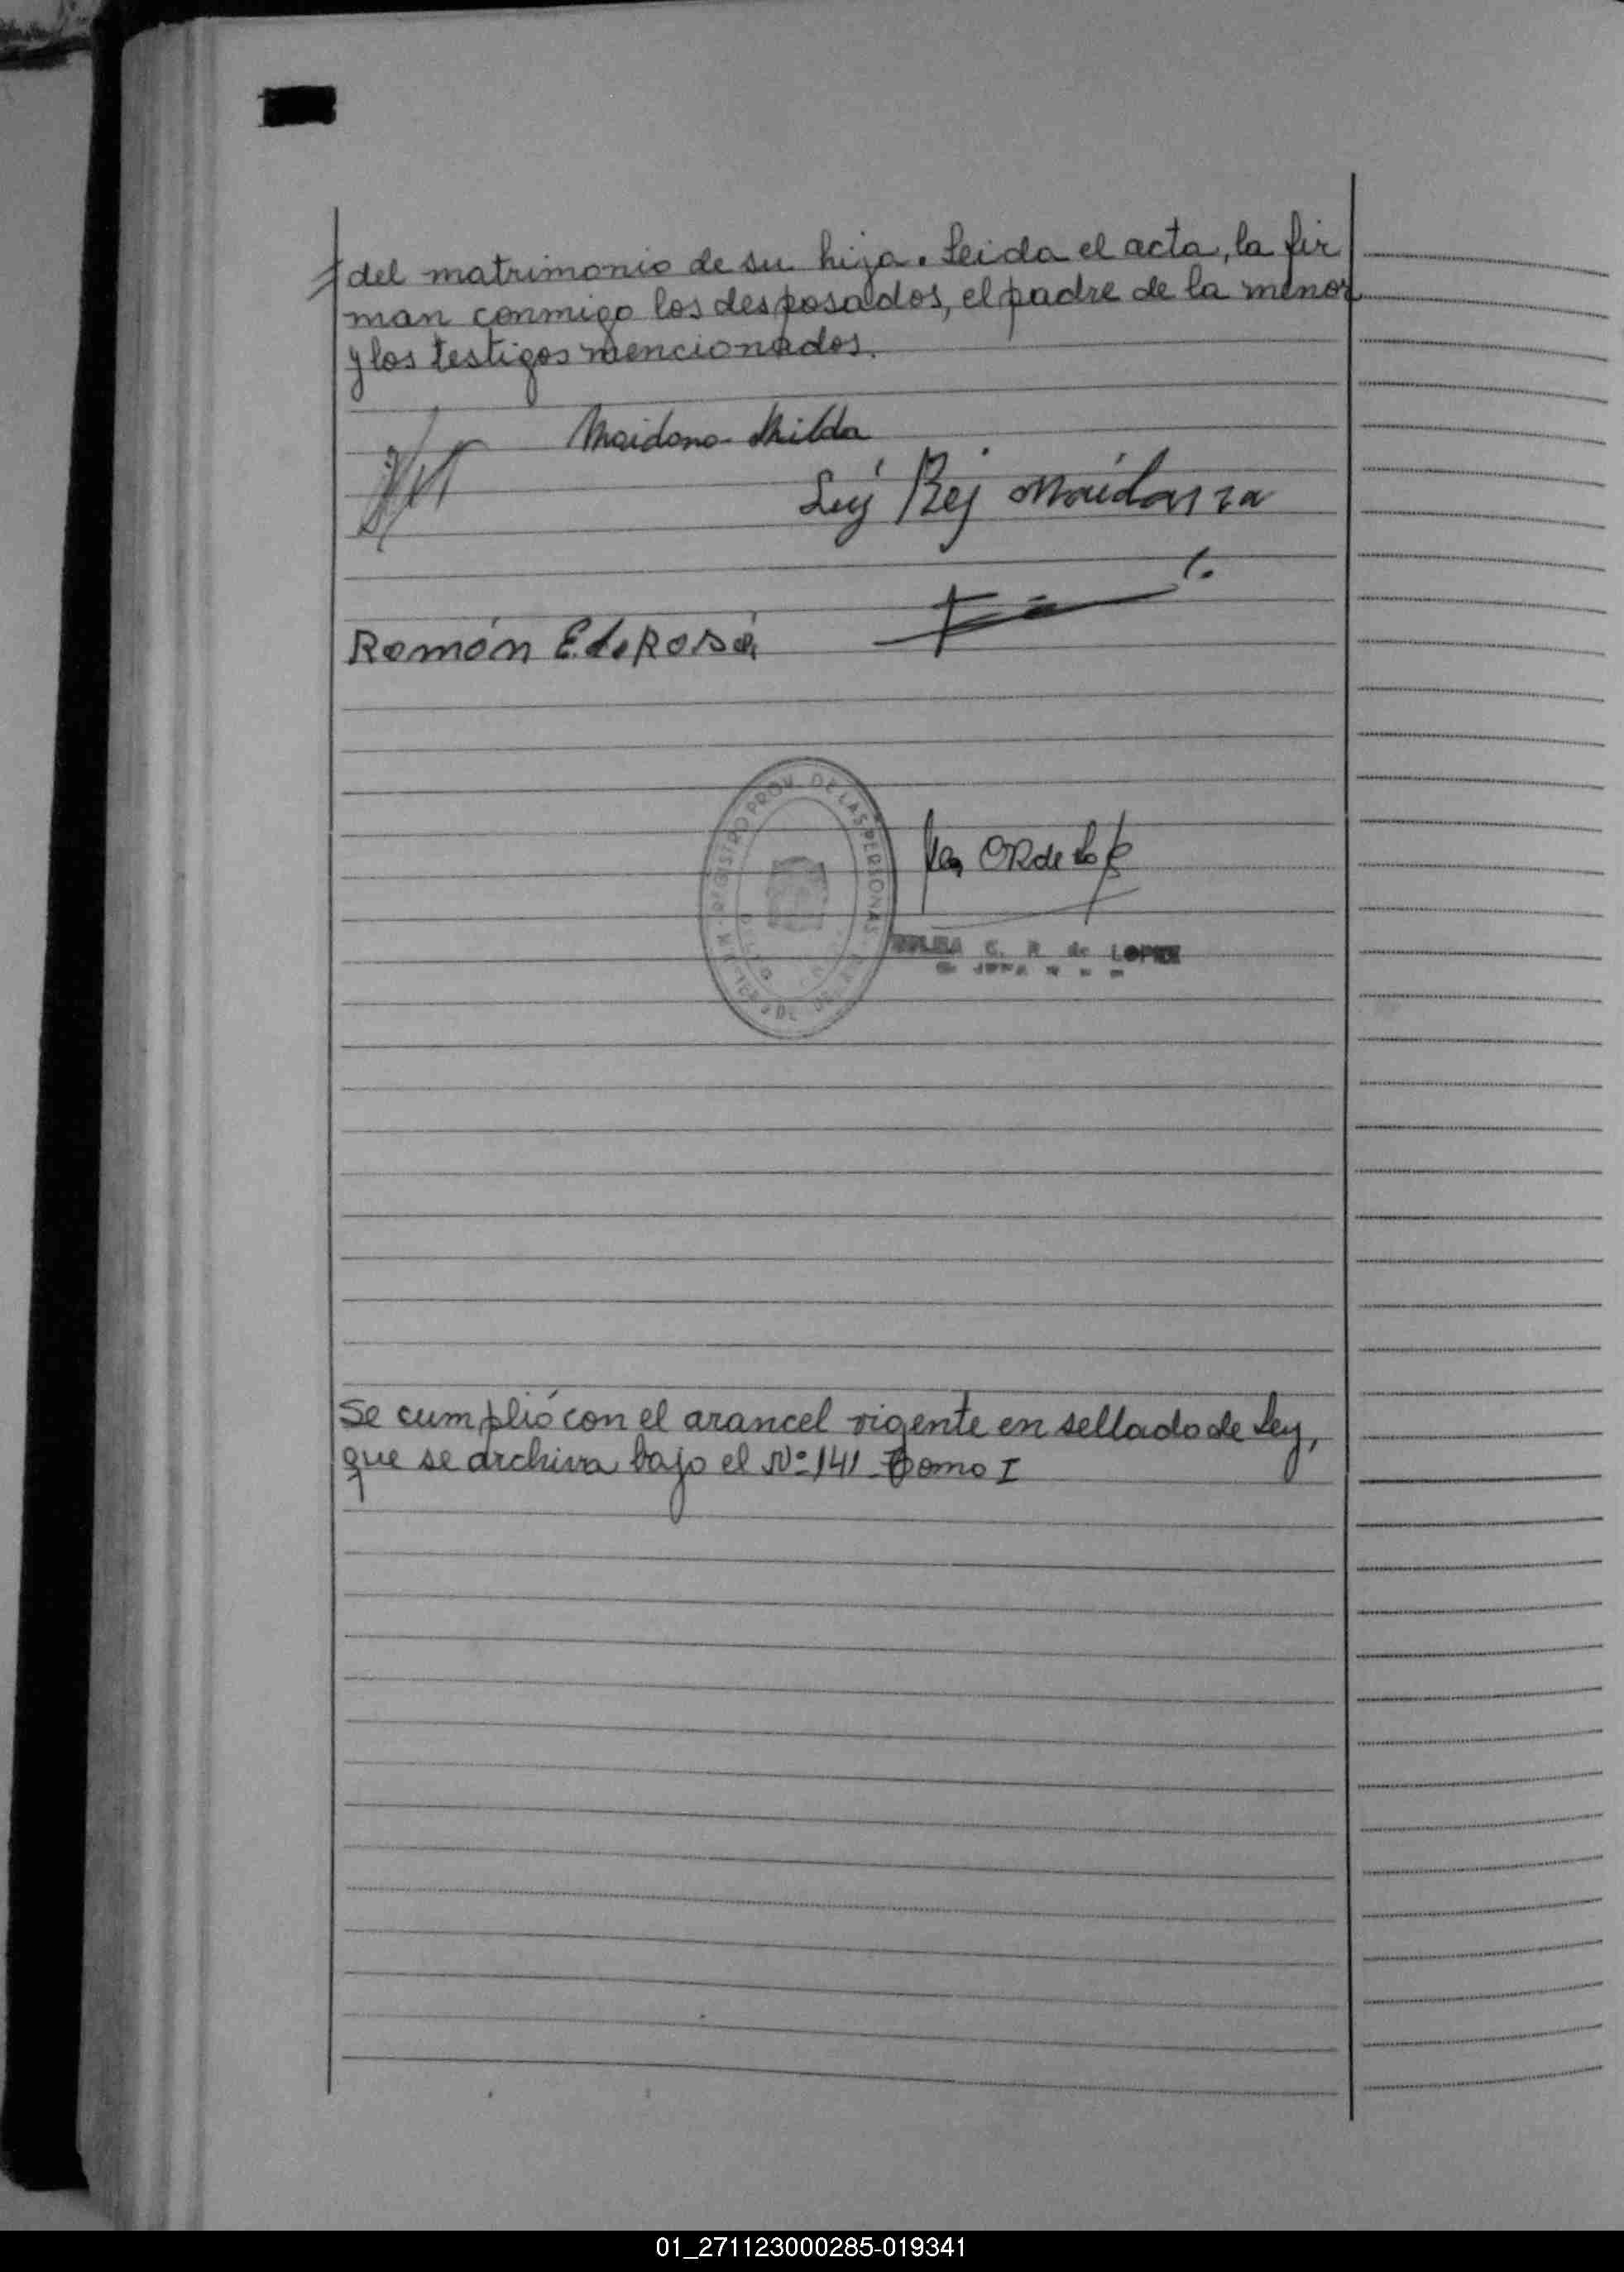 del matrimonio de su hija. Leida el acta, la fir
man conmigo los desposados, el padre de la menor
y los testigos mencionados.
Maidana Nilda
Luj Rej Maidana
Ramón E. de Rosa
REGISTRO PROV. DE LAS PERSONAS
C. R. de LOPEZ
Se cumplió con el arancel vigente en sellado de Ley,
que se archiva bajo el Nº 141 Tomo I
01_271123000285-019341